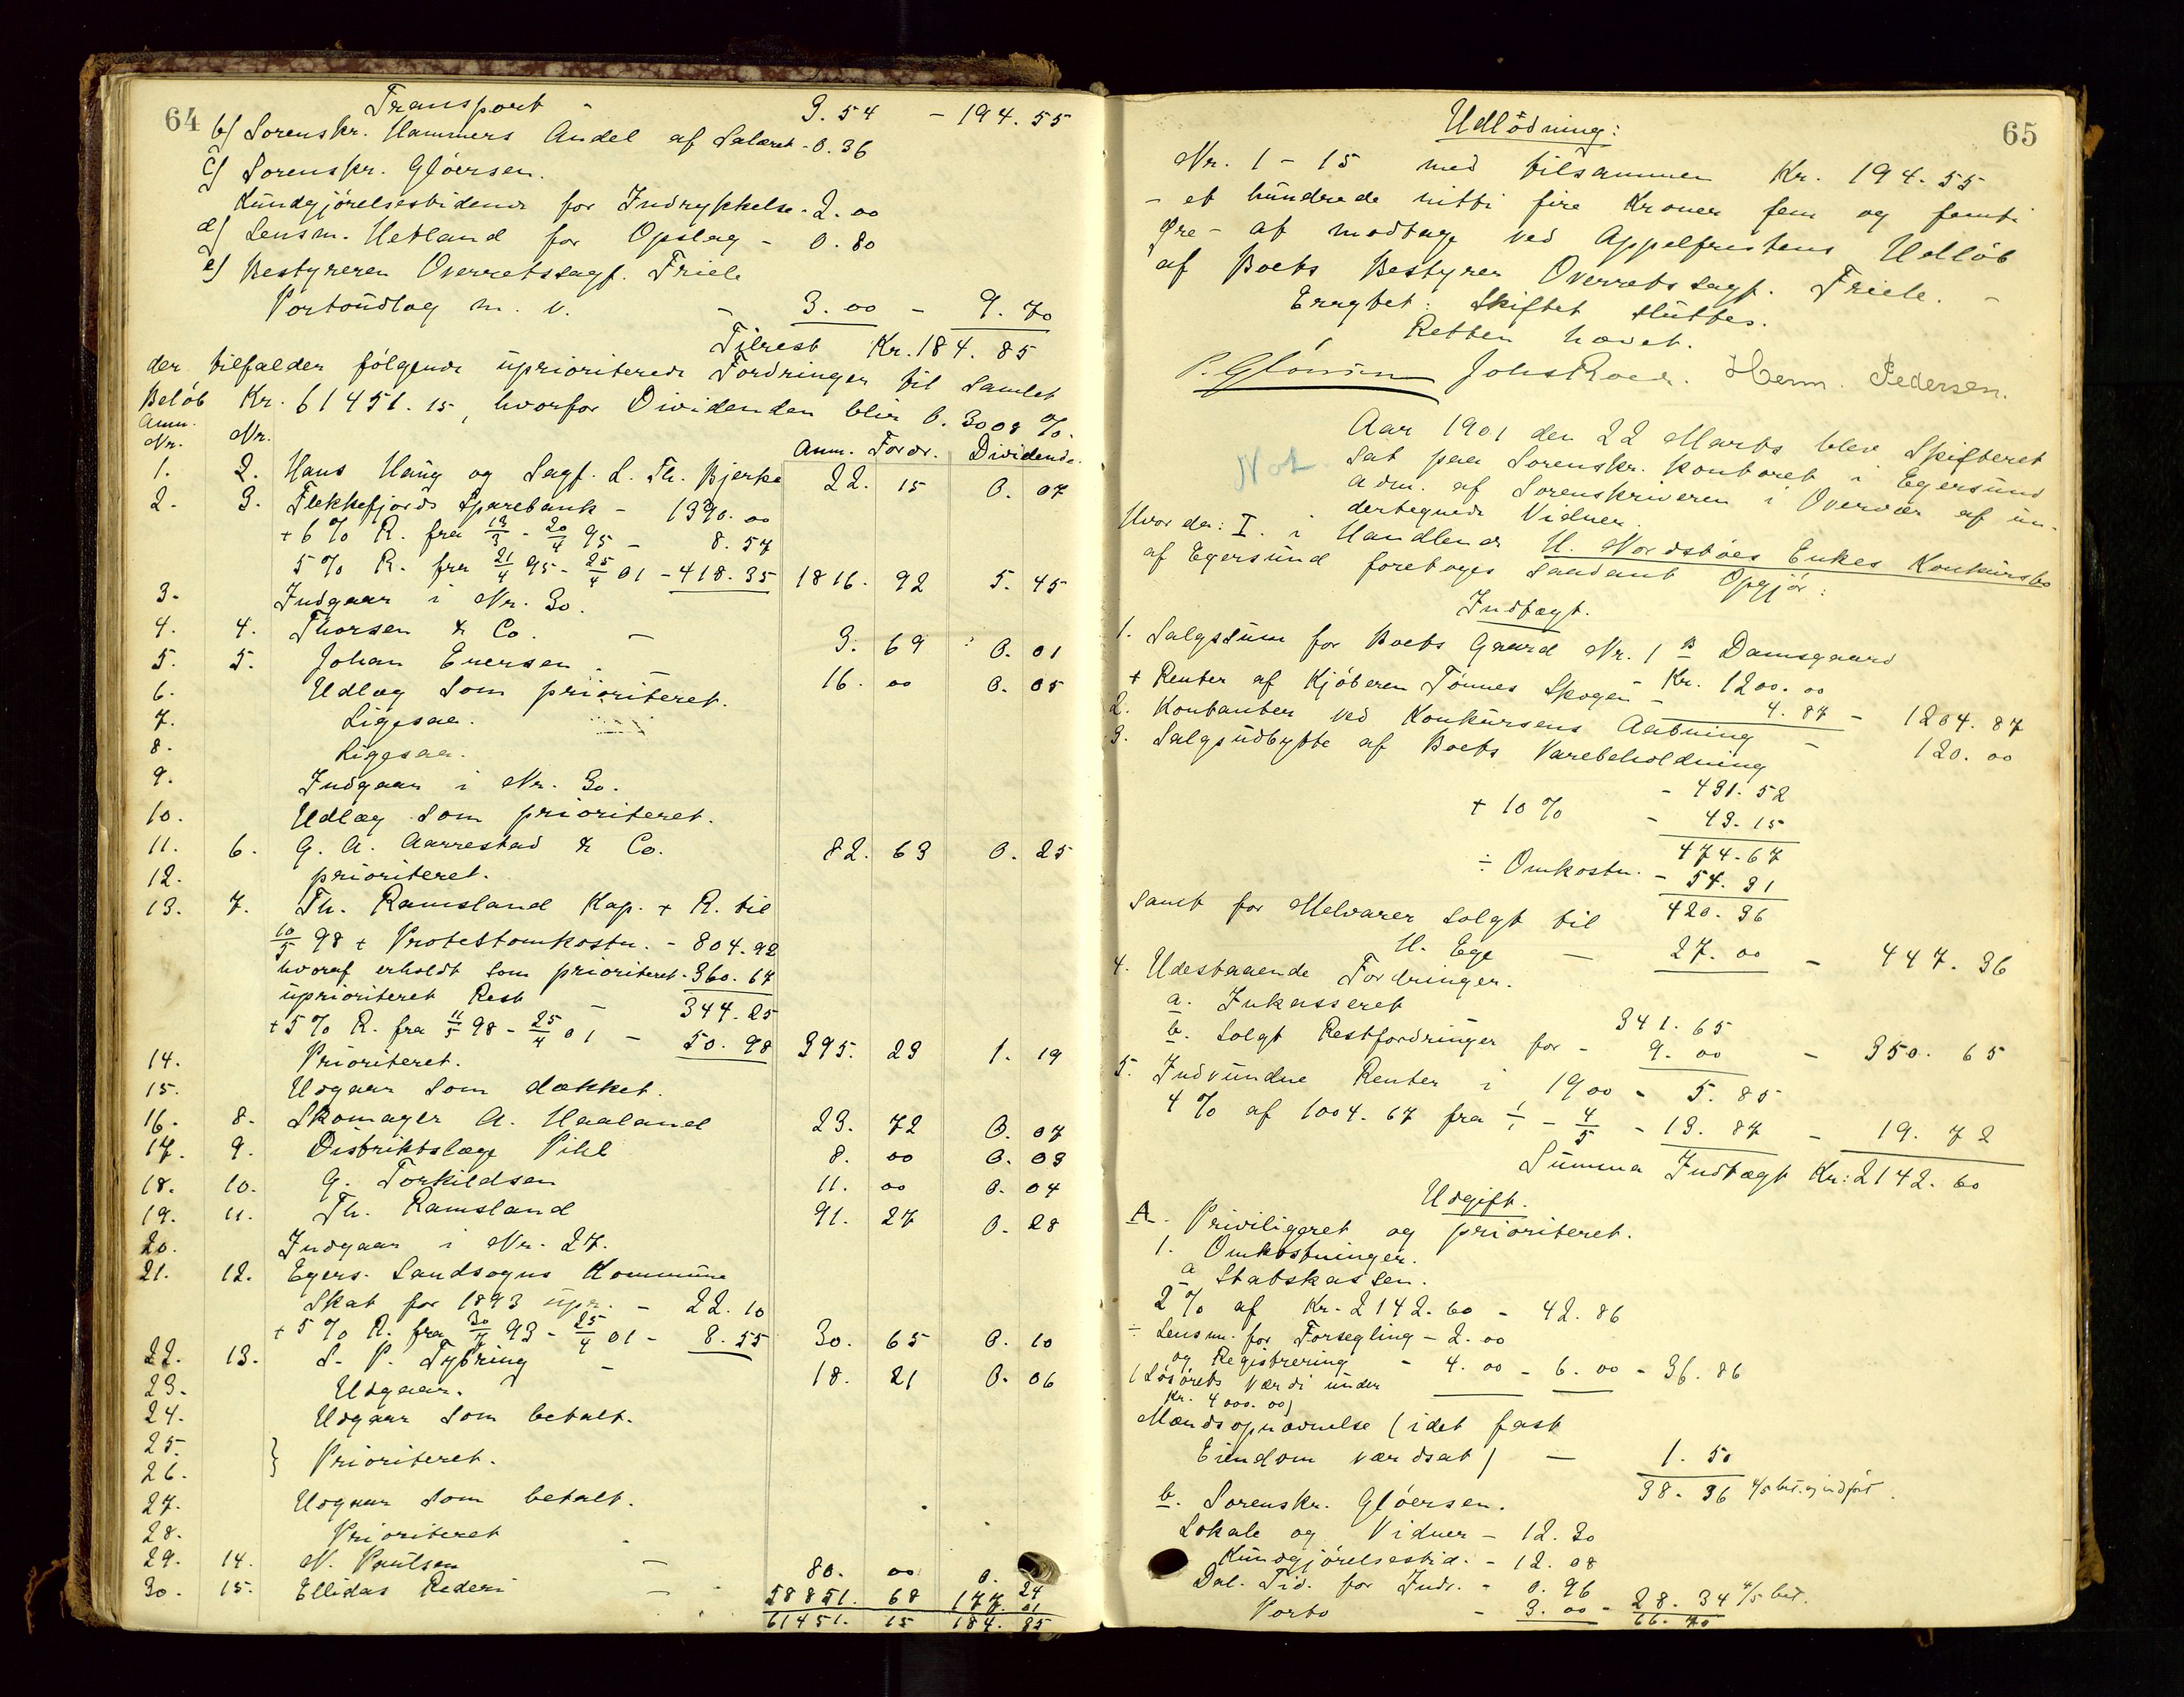 64
Transport - 3.54 - 194.55
b) Sorenskr. Hammers Andel af Salæret - 0.36
c) Sorenskr. Glöersen.
Kundgjörelsestidende for Indrykkelse - 2.00
d) Lensm. Hetland for Opslag - 0.80
e) Bestyreren Overretssagf. Friele
Portoudlæg m. v. - 3.00 - 9.70
Tilrest Kr. 184.85
der tilfalder fölgende uprioriterede Fordringer til samlet
Belöb Kr. 61451.15, hvorfor Dividenden blir 0.3008 %.
Anm. Nr. Nr. Anm. Fordr. Dividende.
1. 2. Hans Haug og Sagf. L. Th. Bjerke 22. 15 0. 07
2. 3. Flekkefjords Sparebank - 1390.00
+ 6 % R. fra 13/3 - 20/4 95 - 8.57
5 % R. fra 21/4 95 - 25/4 01 - 418.35 1816. 92 5. 45
3. Indgaar i Nr. 30.
4. 4. Thorsen & Co. - 3. 69 0. 01
5. 5. Johan Eversen - 16. 00 0. 05
6. Udlæg som prioriteret.
7. Ligesaa.
8. Ligesaa.
9. Indgaar i Nr. 30.
10. Udlæg som prioriteret.
11. 6. G. A. Aarrestad & Co. 82. 63 0. 25
12. prioriteret.
13. 7. Th. Ramsland Kap. + R. til
10/5 98 + Protestomkostn. - 804.92
hvoraf erholdt som prioriteret - 360.67
uprioriteret Rest - 344.25
+ 5 % R. fra 11/5 98 - 25/4 01 - 50.98 395. 23 1. 19
14. Prioriteret.
15. Udgaar som dækket.
16. 8. Skomager A. Haaland 23. 72 0. 07
17. 9. Distriktslæge Pihl 8. 00 0. 03
18. 10. G. Torkildsen 11. 00 0. 04
19. 11. Th. Ramsland 91. 27 0. 28
20. Indgaar i Nr. 27.
21. 12. Egers. Landsogns Kommune
Skat for 1893 upr. - 22.10
+ 5 % R. fra 30/7 93 - 25/4 01 - 8.55 30. 65 0. 10
22. 13. S. P. Tybring - 18. 21 0. 06
23. Udgaar.
24. Udgaar som betalt.
25. } Prioriteret.
26.
27. Udgaar som betalt.
28. Prioriteret
29. 14. N. Poulsen - 80. 00 0. 24
30. 15. Ellidas Rederi - 58851. 68 177. 01
61451. 15 184. 85
65
Udlödning:
Nr. 1 - 15 med tilsammen Kr. 194.55
- et hundrede nitti fire Kroner fem og femti
Øre - at modtage ved Appelfristens Udlöb
af Boets Bestyrer Overretssagf. Friele. -
Eragtet: Skiftet sluttes.
Retten hævet.
P. Glöersen Johs Roer. Herm. Pedersen.
Aar 1901 den 22 Marts blev Skifteret
Not. sat paa Sorenskr. kontoret i Egersund
adm. af Sorenskriveren i Overvær af un-
dertegnede Vidner.
Hvor da: I. i Handlende H. Nordstöes Enkes Konkursbo
af Egersund foretoges saadant Opgjör:
Indtægt.
1. Salgssum for Boets Gaard Nr. 1 B Damsgaard
Kr. 1200.00
+ Renter af Kjöberen Tönnes Skogen - 4.87 - 1204.87
2. Kontanter ved Konkursens Aabning - 120.00
3. Salgsudbytte af Boets Varebeholdning
- 431.52
+ 10 % - 43.15
474.67
÷ Omkostn. - 54.31
420.36
samt for Melvarer solgt til
H. Ege - 27.00 - 447.36
4. Udestaaende Fordringer.
a. Inkasseret 341.65
b. Solgt Restfordringer for - 9.00 - 350.65
5. Indvundne Renter i 1900 - 5.85
4 % af 1004.67 fra 1/1 - 4/5 - 13.87 - 19.72
Summa Indtægt Kr: 2142.60
Udgift.
A. Priviligeret og prioriteret.
1. Omkostninger.
a Statskassen.
2 % af Kr. 2142.60 - 42.86
÷ Lensm. for Forsegling - 2.00
og Registrering - 4.00 - 6.00 - 36.86
(Lösörets Værdi under
Kr. 4000.00)
Mændsopnævnelse (idet fast
Eiendom værdsat) - 1.50
38.36 4/5 bet. og indfört.
b. Sorenskr. Glöersen.
Lokale og Vidner - 12.30
Kundgjörelsestid. - 12.08
Dal. Tid. for Indr. - 0.96
Porto - 3.00 - 28.34 4/5 bet.
66.70